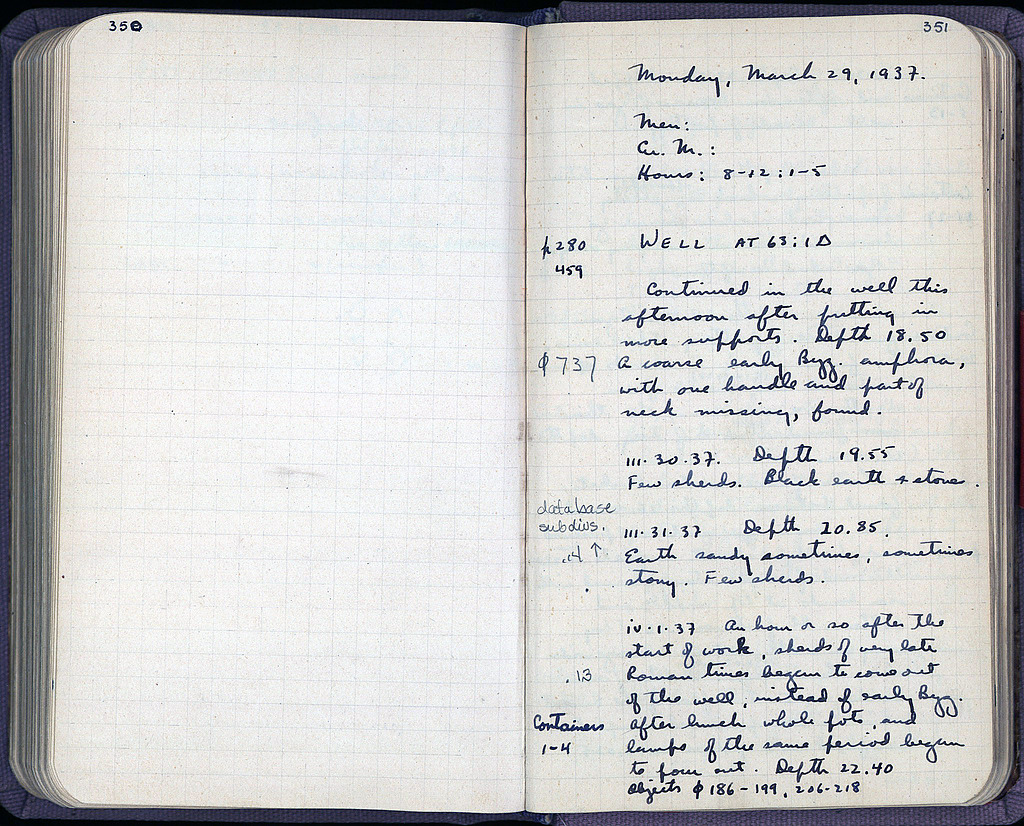 350
351
Monday, March 29, 1937.
Men:
Gr. M.:
Hours: 8-12 : 1-5
p 280
459
WELL AT 63:1Δ
Continued in the well this
afternoon after putting in
more supports. Depth 18.50
φ 737
A coarse early Byz. amphora,
with one handle and part of
neck missing, found.
III.30.37. Depth 19.55
Few sherds. Black earth + stones.
database
subdivs.
.4 ↑
III.31.37 Depth 20.85.
Earth sandy sometimes, sometimes
stony. Few sherds.
IV.1.37 An hour or so after the
start of work, sherds of very late
.13
Roman times began to come out
of the well, instead of early Byz.
Containers
1-4
After lunch whole pots, and
lamps of the same period began
to pour out. Depth 22.40
Objects φ 186-199, 206-218